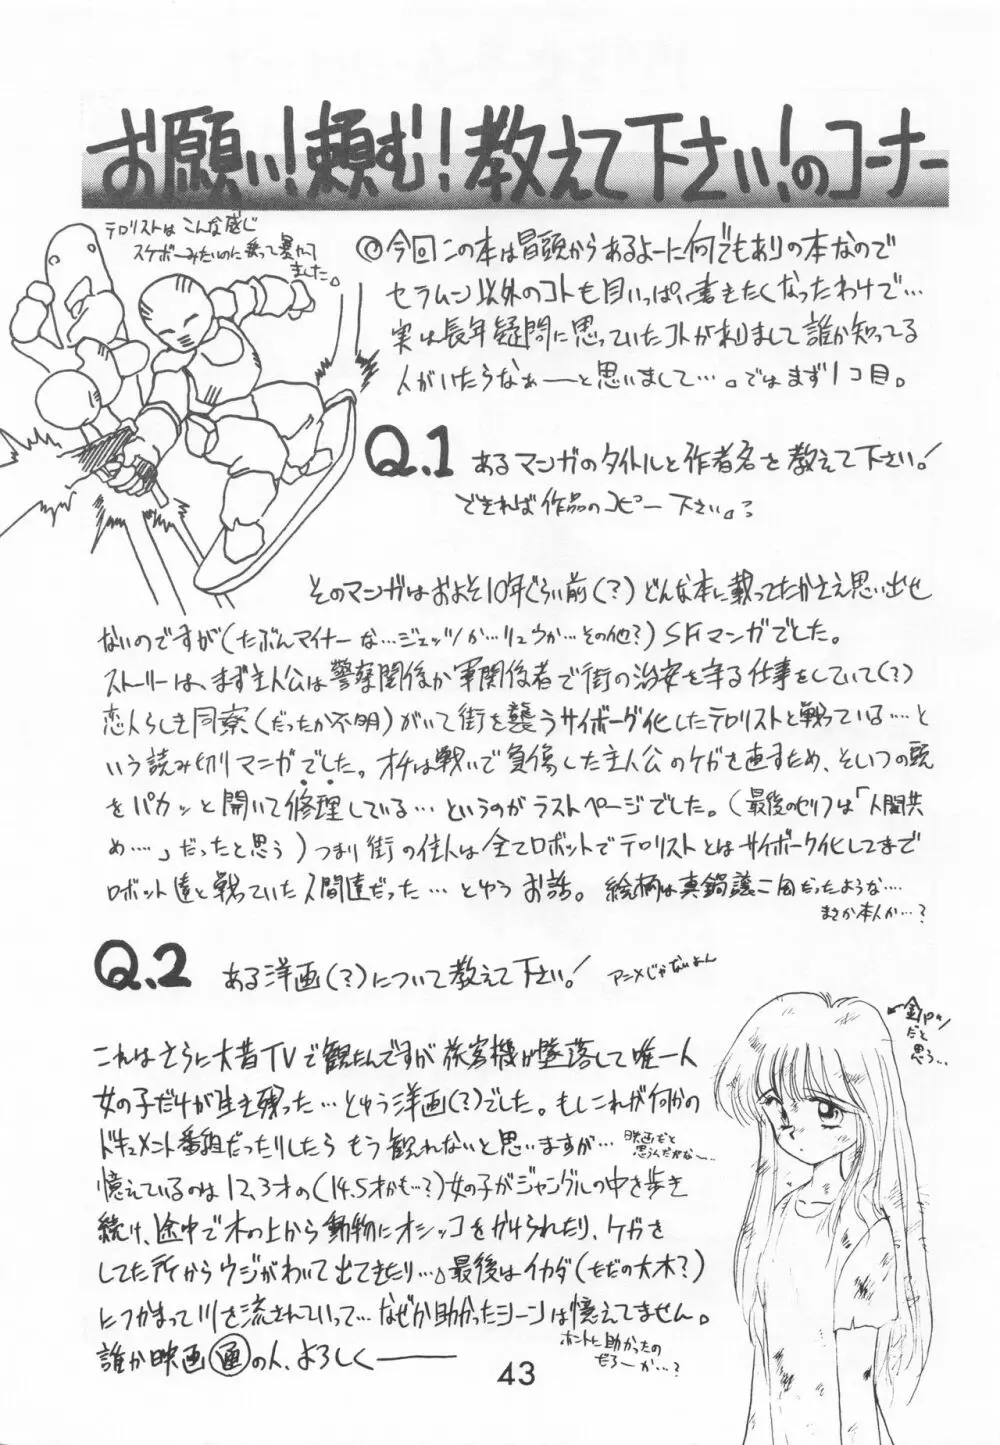 お願い!頼む!教えて下さい!のコーナー
テロリストはこんな感じ
スケボーみたいのに乗って暴れて
ました。
◎今回この本は冒頭からあるよーに何でもありの本なので
セラムン以外のコトも目いっぱい書きたくなったわけで…
実は長年疑問に思っていたコトがありまして誰か知ってる
人がいたらなぁーーと思いまして…。ではまず1コ目。
Q.1 あるマンガのタイトルと作者名を教えて下さい!
できれば作品のコピー下さい。
そのマンガはおよそ10年ぐらい前(?)どんな本に載ってたかさえ思い出せ
ないのですが(たぶんマイナーな…ジェッツか…リュウか…その他?)SFマンガでした。
ストーリーは、まず主人公は警察関係か軍関係者で街の治安を守る仕事をしていて(?)
恋人らしき同寮(だったか不明)がいて街を襲うサイボーグ化したテロリストと戦っている…と
いう読み切りマンガでした。オチは戦いで負傷した主人公のケガを直すため、そいつの頭
をパカッと開いて修理している…というのがラストページでした。(最後のセリフは「人間共
め…」だったと思う)つまり街の住人は全てロボットでテロリストとはサイボーグ化してまで
ロボット達と戦っていた人間達だった…とゆうお話。絵柄は真鍋譲二風だったような…
まさか本人か…?
Q.2 ある洋画(?)について教えて下さい!
アニメじゃないよん
これはさらに大昔TVで観たんですが旅客機が墜落して唯一人
女の子だけが生き残った…とゆう洋画(?)でした。もしこれが何かの
ドキュメント番組だったりしたらもう観れないと思いますが…
映画だと
思うんだがなー…
憶えているのは12,3才の(14.5才かも…?)女の子がジャングルの中を歩き
続け、途中で木の上から動物にオシッコをかけられたり、ケガを
してた所からウジがわいて出てきたり…。最後はイカダ(ただの大木?)
につかまって川を流されていって…なぜか助かったシーンは憶えてません。
ホントに助かったの
だろーか…?
誰か映画通の人、よろしくーー
←金パツ
だと
思う…
43